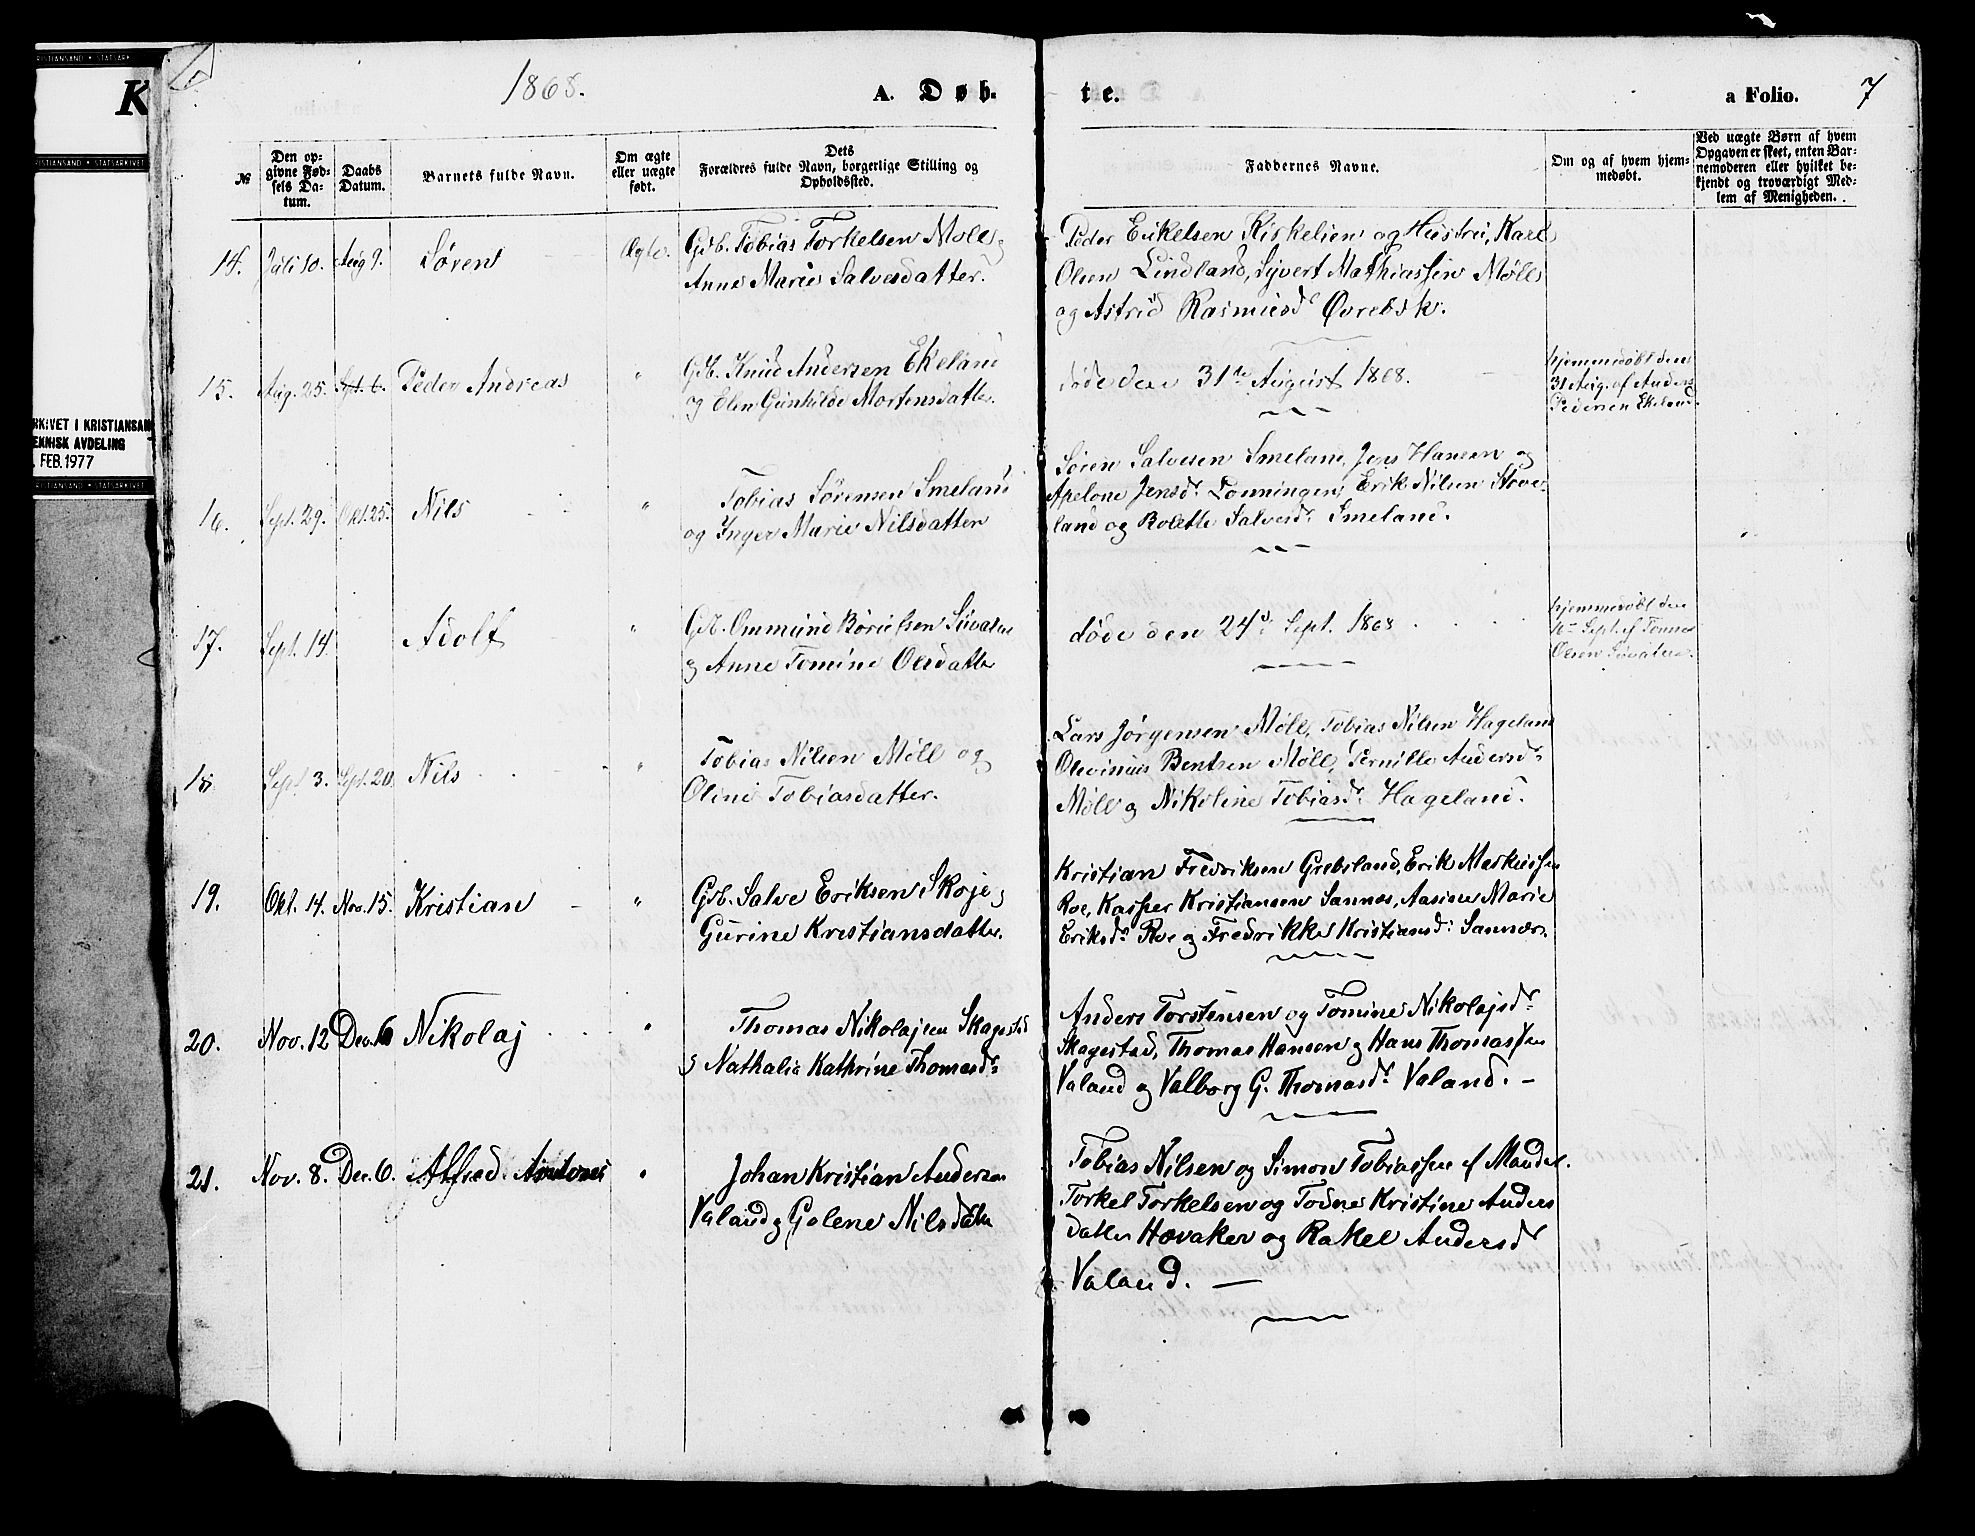 KRISTIANSAND • STATSARK
K
KRISTIANSAND • STATSARKIVET
ARKIVET I KRISTIANSAN
EKNISK AVDELING
FEB. 1977
KRISTIANSAND • STATSARKIVET
1868.
A. Døb-
te.
a Folio.
7
№
Den op-
givne Fød-
sels Da-
tum.
Daabs
Datum.
Barnets fulde Navn.
Om ægte
eller uægte
født.
Dets
Forældres fulde Navn, borgerlige Stilling og
Opholdssted.
Faddernes Navne.
Om og af hvem hjem-
medøbt.
Ved uægte Børn af hvem
Opgaven er skeet, enten Bar-
nemoderen eller hvilket be-
kjendt og troværdigt Med-
lem af Menigheden.
14. Juli 10. Aug 9. Søren Ægte.
Gdb. Tobias Torkelsen Møll og
Anne Marie Salvesdatter.
Peder Eriksen Kirkelien og Hustru, Karl
Olsen Lindland, Syvert Mathiassen Møll
og Astrid Rasmusd. Øvrebsk.
15. Aug. 25. Sept. 6. Peder Andreas "
Gdb. Knud Andersen Ekeland
og Olen Gunhilde Mortensdatter
døde den 31te August 1868.
hjemmedøbt den
31 Aug. af Anders
Pedersen Ekeland
16. Sept. 29. Okt. 25. Nils "
Tobias Sørensen Smeland
og Inger Marie Nilsdatter
Søren Salvesen Smeland, Jens Hansen og
Apelone Jensd. Lonningen, Erik Nilsen Stove-
land og Bolette Salvesd. Smeland.
17. Sept. 14. Adolf "
Gdb. Ommund Børuelsen Sùvatne
og Anne Tomine Olsdatter
døde den 24d. Sept. 1868.
hjemmedøbt den
16 Sept. af Tønnes
Olsen Søvatne.
18. Sept 3. Sept. 20. Nils "
Tobias Nilsen Møll og
Oline Tobiasdatter.
Lars Jørgensen Møll, Tobias Nilsen Hageland
Olevinus Bentsen Møll, Pernille Andersd.
Møll og Nikoline Tobiasd. Hageland.
19. Okt. 14. Nov. 15. Kristian "
Gdb. Salve Eriksen Skoje og
Gurine Kristiansdatter.
Kristian Fredriksen Grebsland, Erik Markussen
Roe, Kasper Kristiansen Sannes, Aasine Marie
Eriksd. Roe og Fredrikke Kristiansd. Sannes.
20. Nov. 12 Dec. 6 Nikolaj "
Thomas Nikolajsen Skagestad
og Nathalie Kathrine Thomasd.
Anders Torstensen og Tomine Nikolajsd.
Skagestad, Thomas Hansen og Hans Thomassen
Valand og Valborg G. Thomasd. Valand. –
21. Nov. 8. Dec. 6. Alfred Antoni "
Johan Kristian Andersen
Valand og Golene Nilsdatter
Tobias Nilsen og Simon Tobiassen af Mandal.
Torkel Torkelsen og Todne Kristine Anders
datter Hovaker og Rakel Andersd
Valand. –